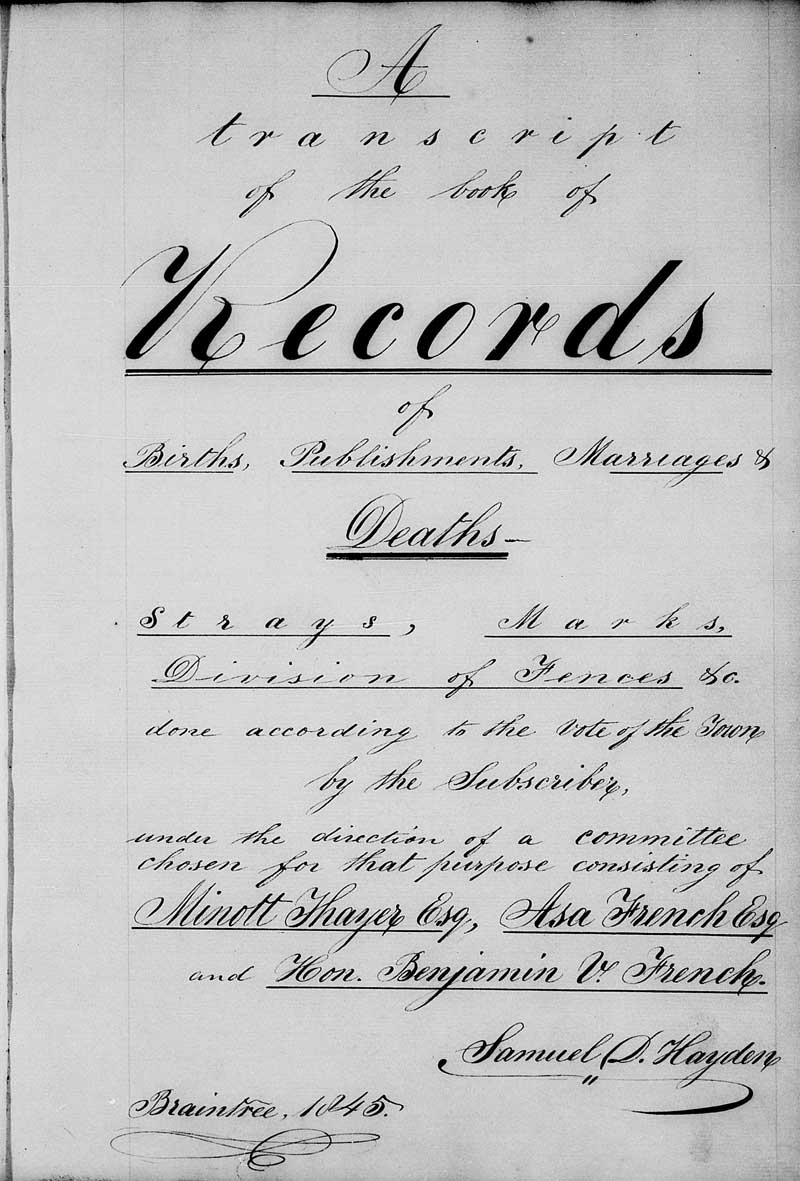 A
transcript
of the book of
Records
of
Births, Publishments, Marriages &
Deaths—
Strays, Marks,
Division of Fences &c.
done according to the vote of the Town
by the Subscriber,
under the direction of a committee
chosen for that purpose consisting of
Minott Thayer Esq, Asa French Esq
and Hon. Benjamin V. French.
Samuel D. Hayden
Braintree, 1845.